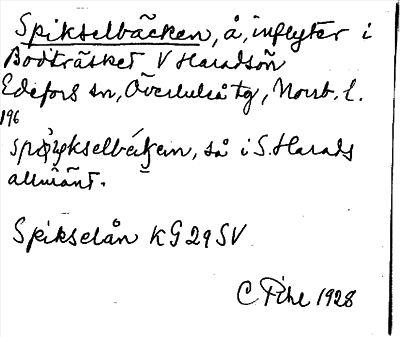 Spikselbäcken, å, inflyter i
Bodträsket V Haradsön
Edefors sn, Överluleå tg, Norrb. l.
196
så i S. Harads
allmänt.
Spikselån KG 29 SV
C. Pihl 1928